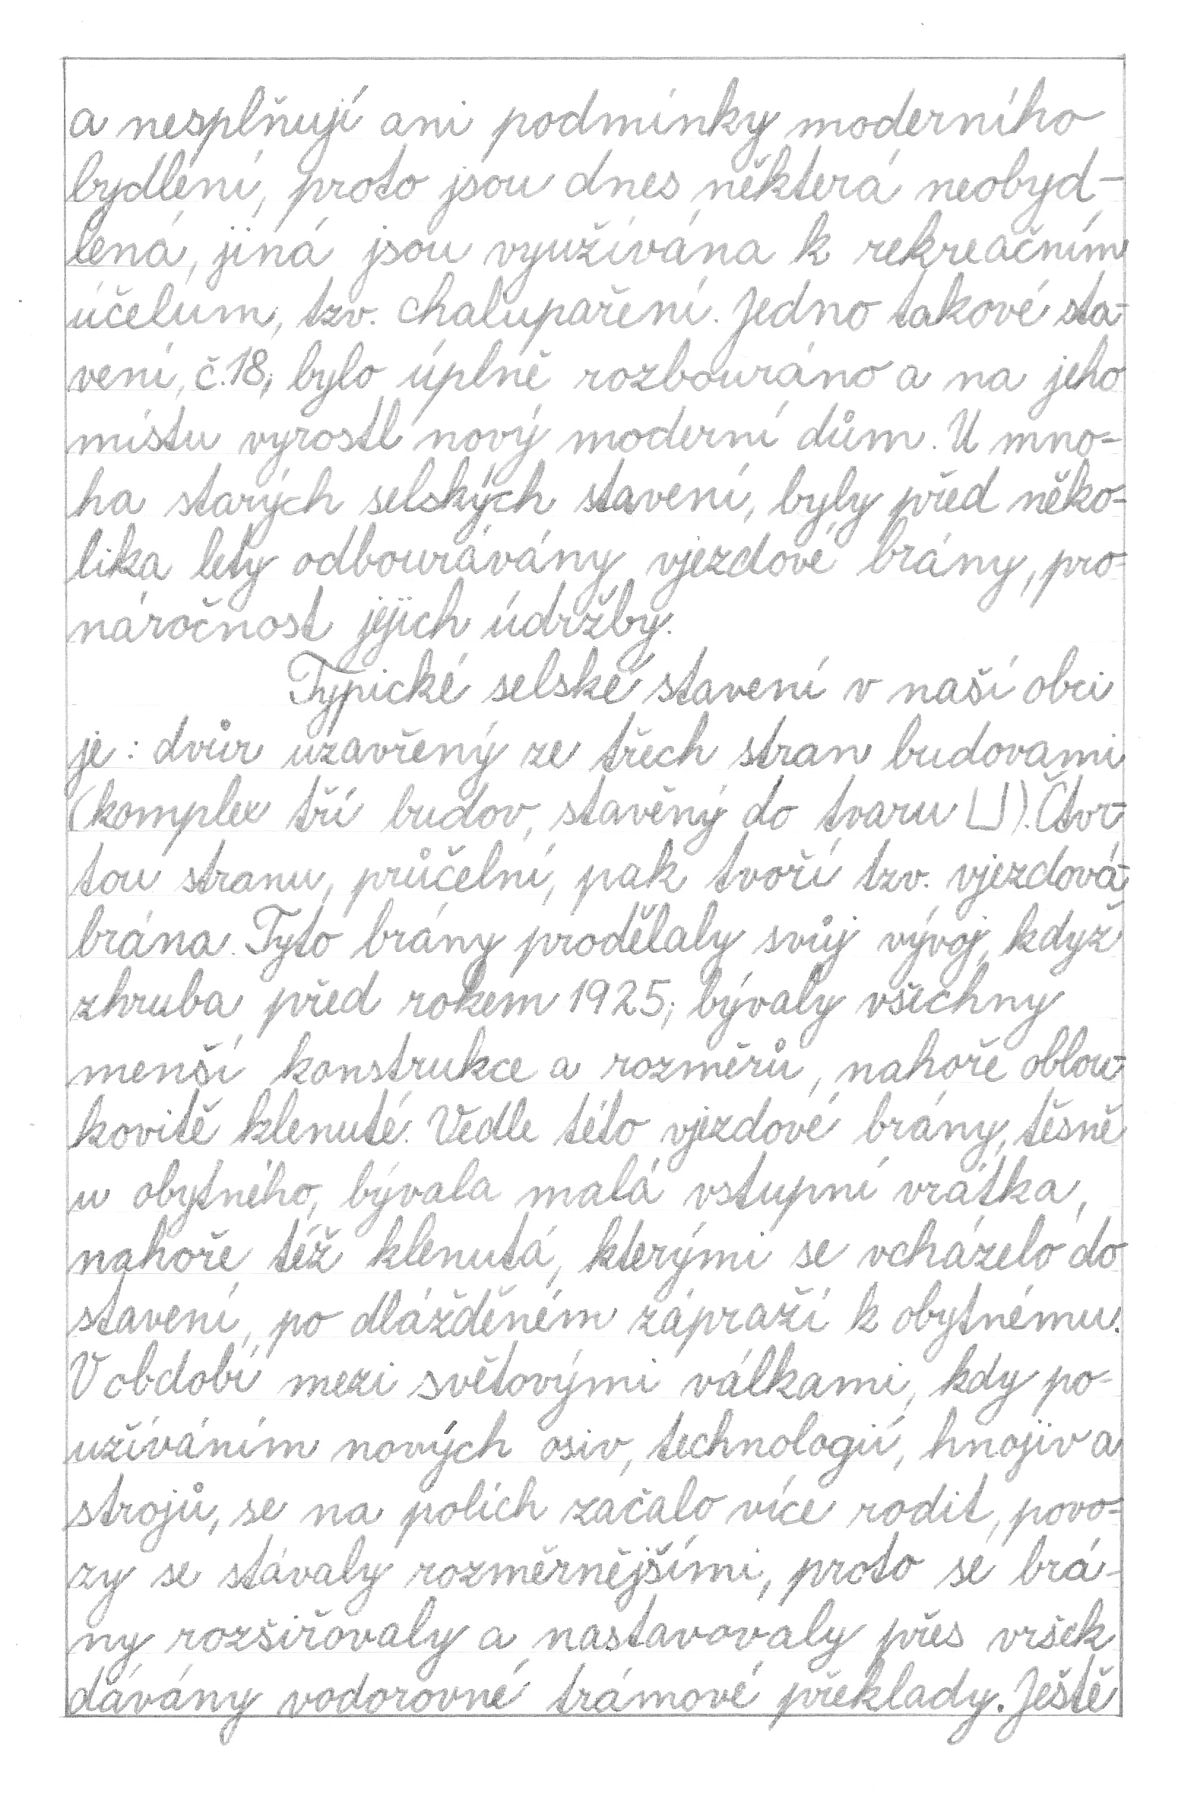 a nesplňují ani podmínky moderního
bydlení, proto jsou dnes některá neobyd-
lená, jiná jsou využívána k rekreačním
účelům, tzv. chalupaření. Jedno takové sta-
vení, č.18, bylo úplně rozbouráno a na jeho
místu vyrostl nový moderní dům. U mno-
ha starých selských stavení, byly před něko-
lika lety odbourávány vjezdové brány, pro
náročnost jejich údržby.
Typické selské stavení v naší obci
je: dvůr uzavřený ze třech stran budovami
(komplex tří budov, stavěný do tvaru ⊔). Čtvr-
tou stranu, průčelní, pak tvoří tzv. vjezdová
brána. Tyto brány prodělaly svůj vývoj, když
zhruba před rokem 1925, bývaly všechny
menší konstrukce a rozměrů, nahoře oblou-
kovitě klenuté. Vedle této vjezdové brány, těsně
u obytného, bývala malá vstupní vrátka,
nahoře též klenutá, kterými se vcházelo do
stavení, po dlážděném zápraží k obytnému.
V období mezi světovými válkami, kdy po-
užíváním nových osiv, technologií, hnojiv a
strojů, se na polích začalo více rodit, povo-
zy se stávaly rozměrnějšími, proto se brá-
ny rozšiřovaly a nastavovaly přes vršek
dávány vodorovné trámové překlady. Ještě